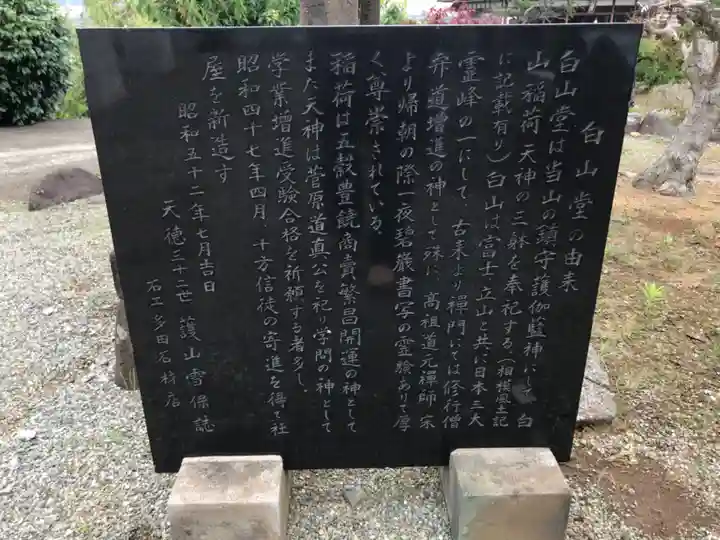 白山堂の由来
白山堂は当山の鎮守護伽藍神にして白
山稲荷天神の三躰を奉祀する(相模風土記
に記載有り)白山は富士立山と共に日本三大
霊峰の一にして、古来より禅門にては修行僧
弁道増進の神として殊に、高祖道元禅師宋
より帰朝の際一夜碧巌書写の霊験ありて厚
く尊崇されている。
稲荷は五穀豊饒商賣繁昌開運の神として
また天神は菅原道真公を祀り学問の神として
学業増進受験合格を祈願する者多し。
昭和四十七年四月、十方信徒の寄進を得て社
屋を新造す
昭和五十二年七月吉日
天徳三十二世 護山雪保誌
石工 多田石材店